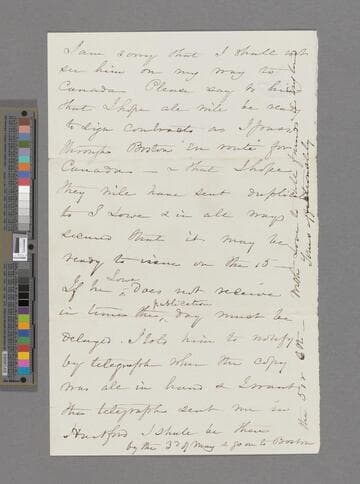 I am sorry that I shall not
see him on my way to
Canada Please say to him
that I hope all will be ready
to sign contracts as I pass
through Boston En route for
Canada — & that I hope
they will have sent duplicate
to S Lowe & in all ways
secured that it may be
ready to issue on the 15 —
If he Lowe Does not receive
in time the publication day must be
Delayed. I told him to notify
by telegraph when the copy
was all in hand & I want
the telegraph sent me in
Hartford I shall be there
by the 3d of May & go on to Boston
the 5 or 6th —
With love to
Yours affectionately